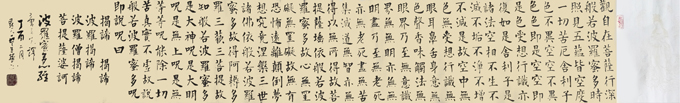 觀自在菩薩行深
般若波羅蜜多時
照見五蘊皆空度
一切苦厄舍利子
色不異空空不異
色色即是空空即
是色受想行識亦
復如是舍利子是
諸法空相不生不
滅不垢不淨不增
不減是故空中無
色無受想行識無
眼耳鼻舌身意無
色聲香味觸法無
眼界乃至無意識
界無無明亦無無
明盡乃至無老死
亦無老死盡無苦
集滅道無智亦無
得以無所得故菩
提薩埵依般若波
羅蜜多故心無罣
礙無罣礙故無有
恐怖遠離顛倒夢
想究竟涅槃三世
諸佛依般若波羅
蜜多故得阿耨多
羅三藐三菩提故
知般若波羅蜜多
是大神咒是大明
咒是無上咒是無
等等咒能除一切
苦真實不虛故說
般若波羅蜜多咒
即說咒曰
揭諦揭諦
波羅揭諦
波羅僧揭諦
菩提薩婆訶
波羅蜜多心經
丁酉